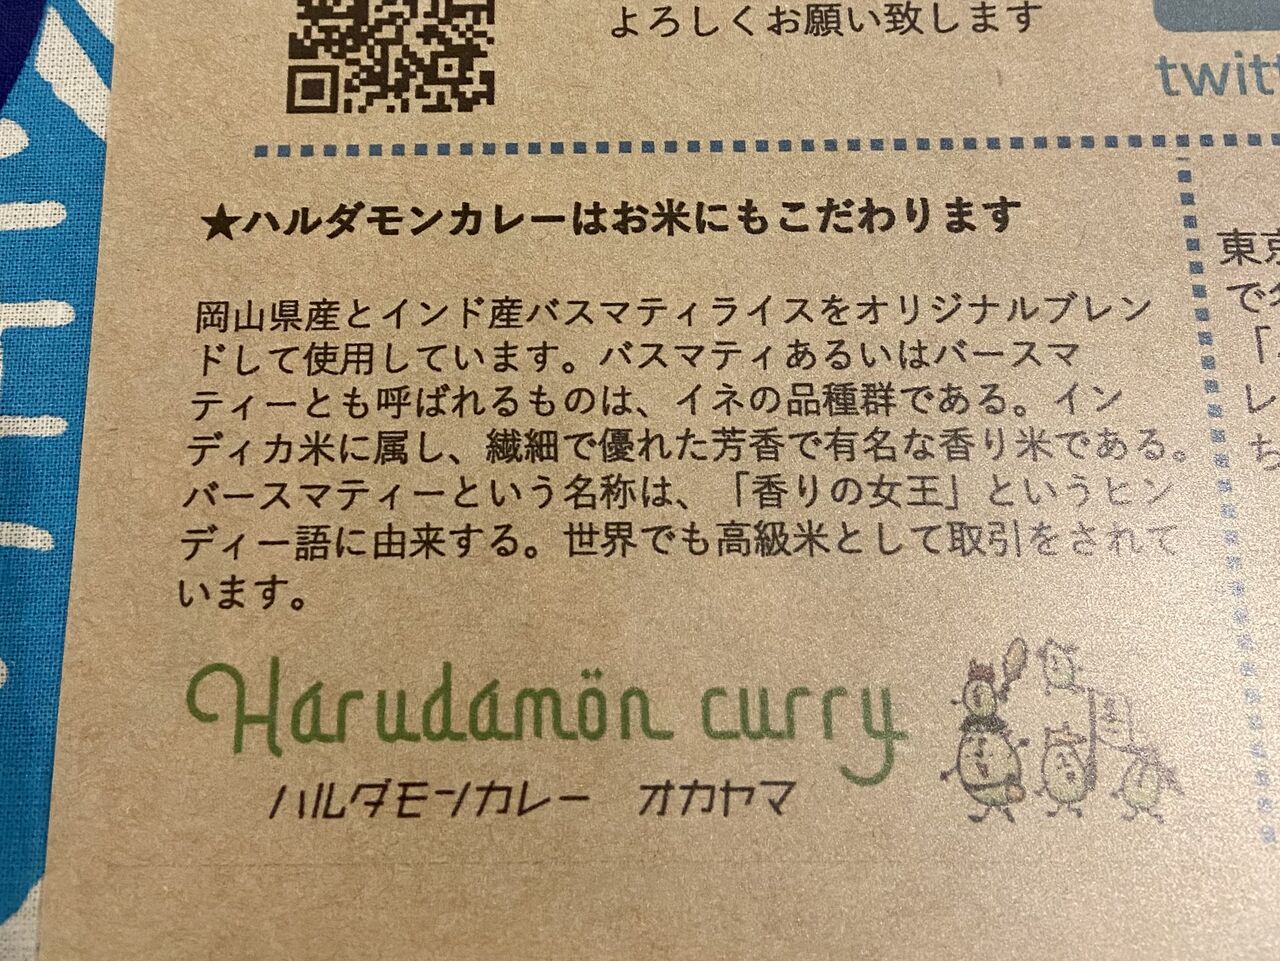 よろしくお願い致します
twitt
★ハルダモンカレーはお米にもこだわります
岡山県産とインド産バスマティライスをオリジナルブレン
ドして使用しています。バスマティあるいはバースマ
ティーとも呼ばれるものは、イネの品種群である。イン
ディカ米に属し、繊細で優れた芳香で有名な香り米である。
バースマティーという名称は、「香りの女王」というヒン
ディー語に由来する。世界でも高級米として取引をされて
います。
Harudamön curry
ハルダモンカレー オカヤマ
東京
で
「
レ
ち